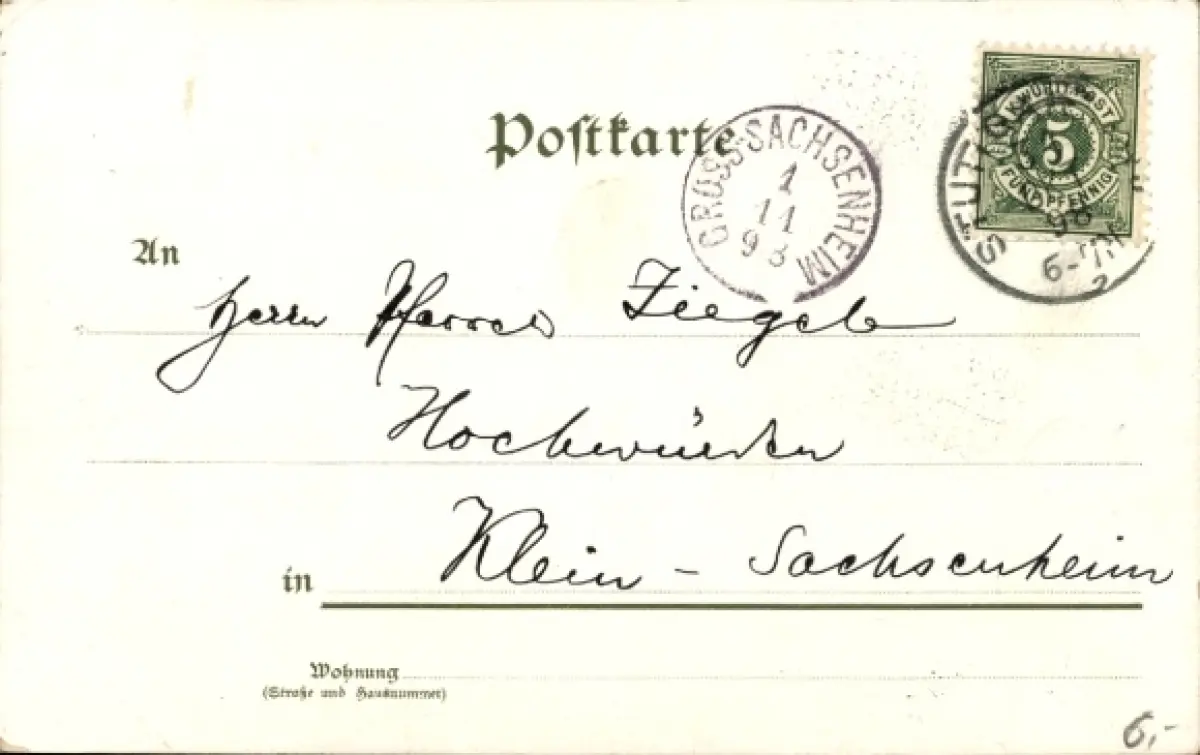 Postkarte
GROSS-SACHSENHEIM
1
11
98
K. WÜRTT. POST
5
FÜNF PFENNIG
STUTTG
98
6-7N
2
An
Herrn Pfarrer Ziegele
Hochwürden
in Klein - Sachsenheim
Wohnung
(Straße und Hausnummer)
6,-